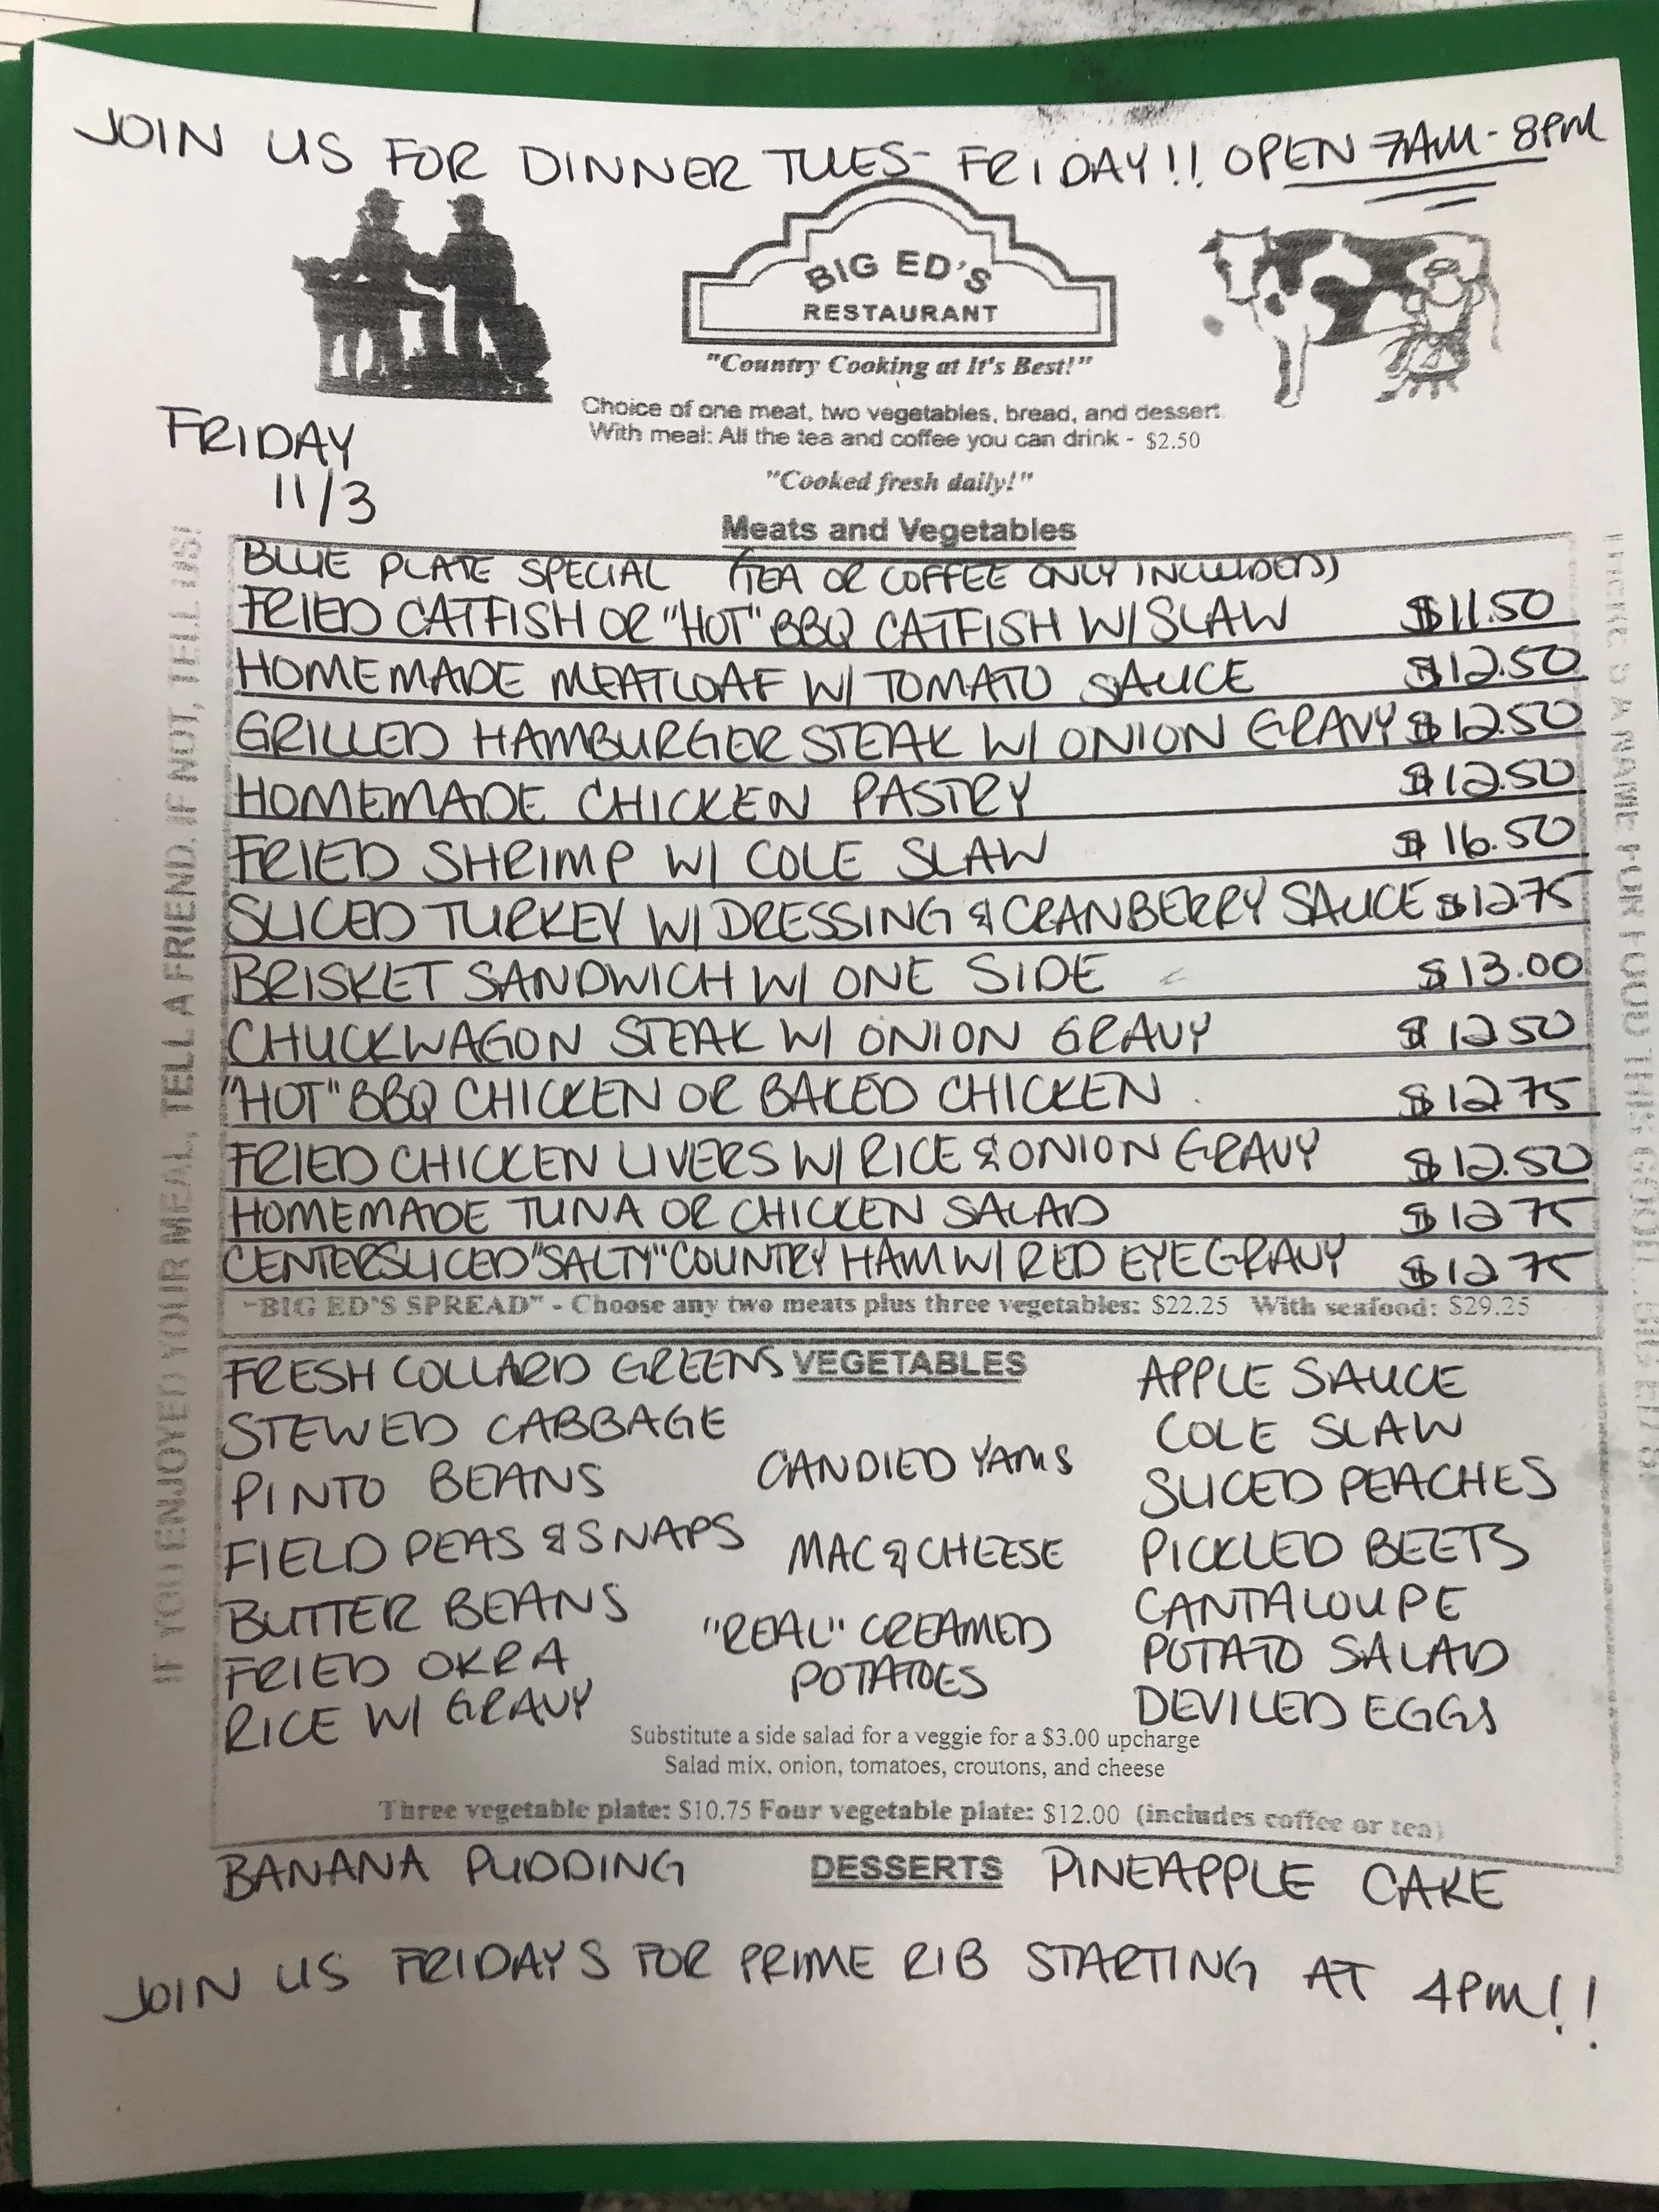 JOIN US FOR DINNER TUES- FRIDAY!! OPEN 7AM-8PM
BIG ED'S
RESTAURANT
"Country Cooking at It's Best!"
Choice of one meat, two vegetables, bread, and dessert.
With meal: All the tea and coffee you can drink - $2.50
"Cooked fresh daily!"
FRIDAY
11/3
Meats and Vegetables
BLUE PLATE SPECIAL (TEA OR COFFEE ONLY INCLUDED)
FRIED CATFISH OR "HOT" BBQ CATFISH W/ SLAW $11.50
HOMEMADE MEATLOAF W/ TOMATO SAUCE $12.50
GRILLED HAMBURGER STEAK W/ ONION GRAVY $12.50
HOMEMADE CHICKEN PASTRY $12.50
FRIED SHRIMP W/ COLE SLAW $16.50
SLICED TURKEY W/ DRESSING & CRANBERRY SAUCE $12.75
BRISKET SANDWICH W/ ONE SIDE $13.00
CHUCKWAGON STEAK W/ ONION GRAVY $12.50
"HOT" BBQ CHICKEN OR BAKED CHICKEN $12.75
FRIED CHICKEN LIVERS W/ RICE & ONION GRAVY $12.50
HOMEMADE TUNA OR CHICKEN SALAD $12.75
CENTERSLICED "SALTY" COUNTRY HAM W/ RED EYE GRAVY $12.75
"BIG ED'S SPREAD" - Choose any two meats plus three vegetables: $22.25 With seafood: $29.25
VEGETABLES
FRESH COLLARD GREENS
STEWED CABBAGE
PINTO BEANS
FIELD PEAS & SNAPS
BUTTER BEANS
FRIED OKRA
RICE W/ GRAVY
CANDIED YAMS
MAC & CHEESE
"REAL" CREAMED
POTATOES
APPLE SAUCE
COLE SLAW
SLICED PEACHES
PICKLED BEETS
CANTALOUPE
POTATO SALAD
DEVILED EGGS
Substitute a side salad for a veggie for a $3.00 upcharge
Salad mix, onion, tomatoes, croutons, and cheese
Three vegetable plate: $10.75 Four vegetable plate: $12.00 (includes coffee or tea)
BANANA PUDDING DESSERTS PINEAPPLE CAKE
JOIN US FRIDAYS FOR PRIME RIB STARTING AT 4PM!!
IF YOU ENJOYED YOUR MEAL, TELL A FRIEND. IF NOT, TELL US!
THERE'S A NAME FOR FOOD THIS GOOD...BIG ED'S!